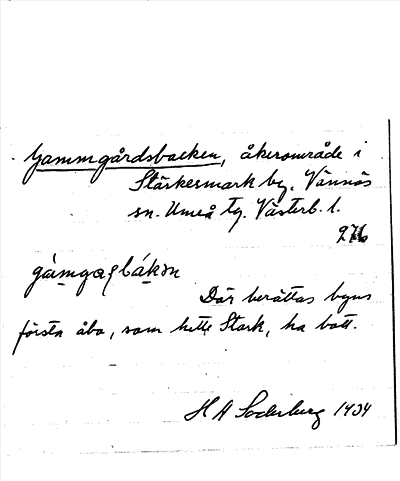 Gammgårdsbacken, åkerområde i
Stärkesmark by, Vännäs
sn. Umeå tg. Västerb. l.
gámgaɽbákən
Där berättas byns
första åbo, som hette Stark, ha bott.
H A Söderberg 1934